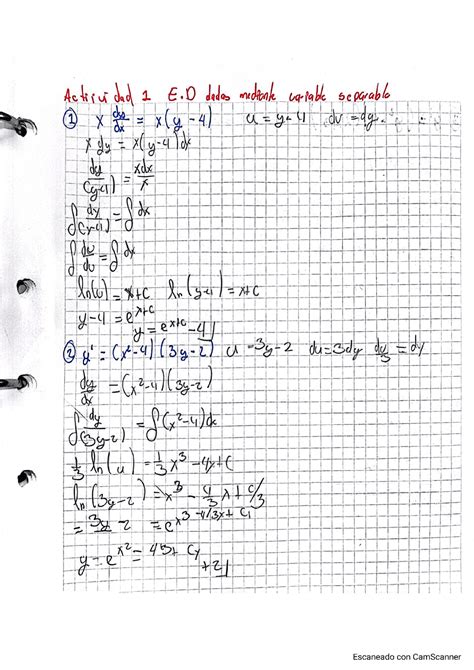 Actividad 1 E.D dadas mediante variable separable
① x dy/dx = x(y-4) u = y-4 du = dy.
x dy = x(y-4)dx
dy/(y-4) = xdx/x
∫ dy/(y-4) = ∫ dx
∫ du/u = ∫ dx
ln(u) = x+c ln(y-4) = x+c
y-4 = e^x+c
y = e^x+c -4
② y' = (x²-4)(3y-2) u = 3y-2 du = 3dy du/3 = dy
dy/dx = (x²-4)(3y-2)
∫ dy/(3y-2) = ∫(x²-4)dx
1/3 ln(u) = 1/3 x³ -4x+C
ln(3y-2) = x³ - 4/3 x + C/3
= 3y-2 = e^x³-4/3x+C1